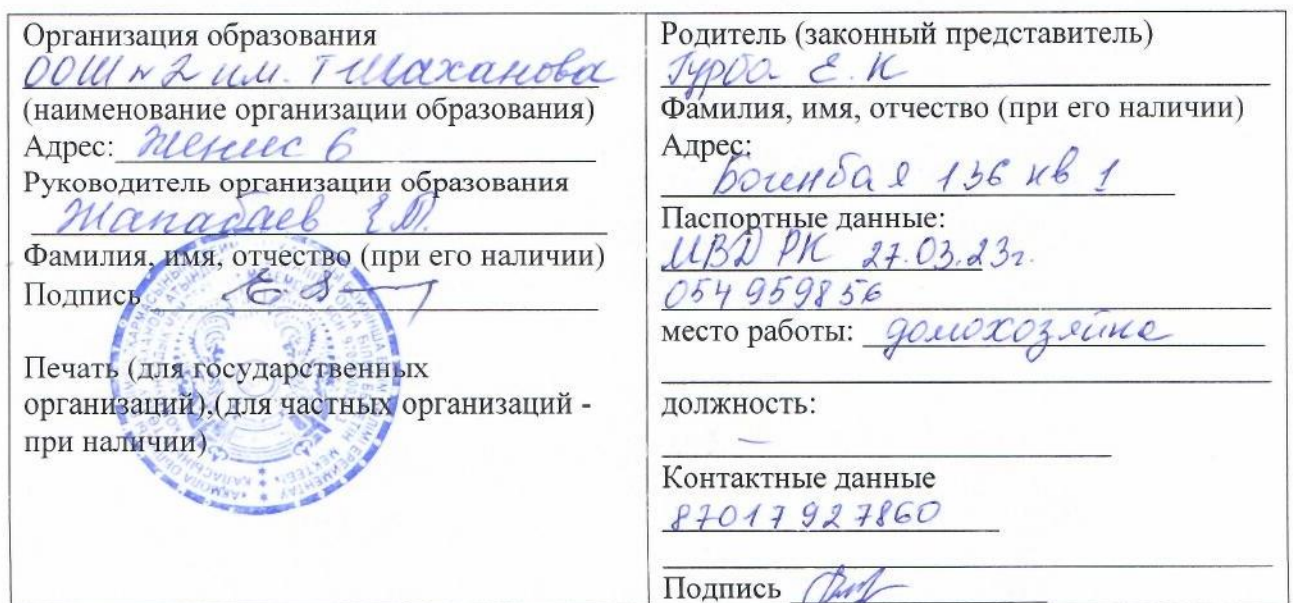 Организация образования
ООШ № 2 им. Т Шаханова
(наименование организации образования)
Адрес: Женис 6
Руководитель организации образования
Жападаев Е.Т.
Фамилия, имя, отчество (при его наличии)
Подпись
Печать (для государственных
организаций),(для частных организаций -
при наличии)
Родитель (законный представитель)
Гурба Е. К
Фамилия, имя, отчество (при его наличии)
Адрес:
Богенбая 136 кв 1
Паспортные данные:
МВД РК 27.03.23г.
054959856
место работы: домохозяйка
должность:
—
Контактные данные
87017927860
Подпись